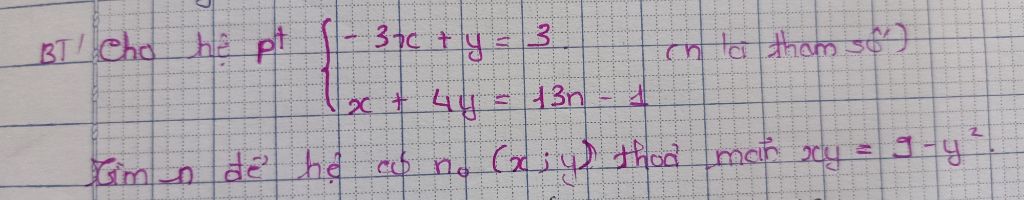 BT1 Cho hệ pt { - 3x + y = 3 (n là tham số)
x + 4y = 13n - 1
Tìm n để hệ có no (x ; y) thoả mãn xy = 9 - y².